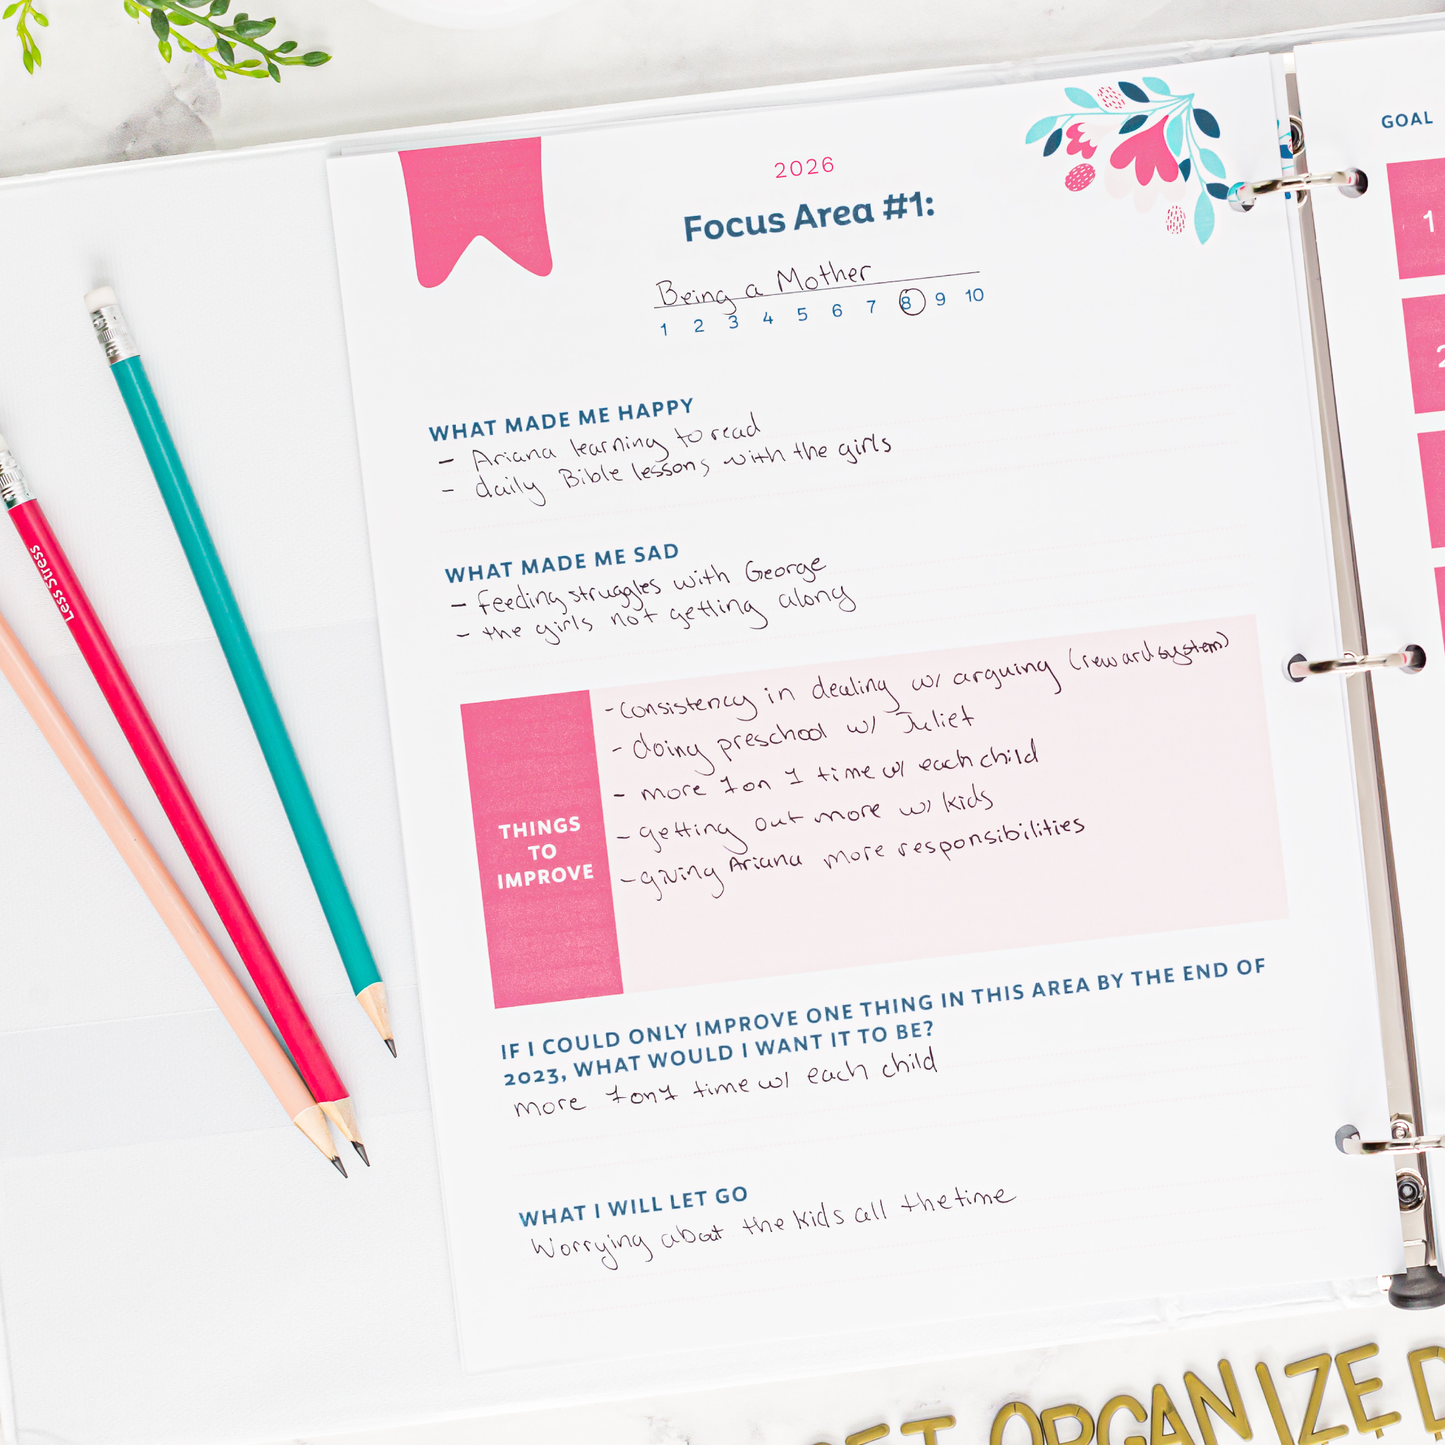 2026
Focus Area #1:
Being a Mother
1 2 3 4 5 6 7 8 9 10
WHAT MADE ME HAPPY
- Ariana learning to read
- daily Bible lessons with the girls
WHAT MADE ME SAD
- feeding struggles with George
- the girls not getting along
THINGS
TO
IMPROVE
- Consistency in dealing w/ arguing (reward system)
- doing preschool w/ Juliet
- more 1 on 1 time w/ each child
- getting out more w/ kids
- giving Ariana more responsibilities
IF I COULD ONLY IMPROVE ONE THING IN THIS AREA BY THE END OF
2023, WHAT WOULD I WANT IT TO BE?
more 1 on 1 time w/ each child
WHAT I WILL LET GO
Worrying about the kids all the time
Less Stress
GOAL
1
2
ORGANIZE